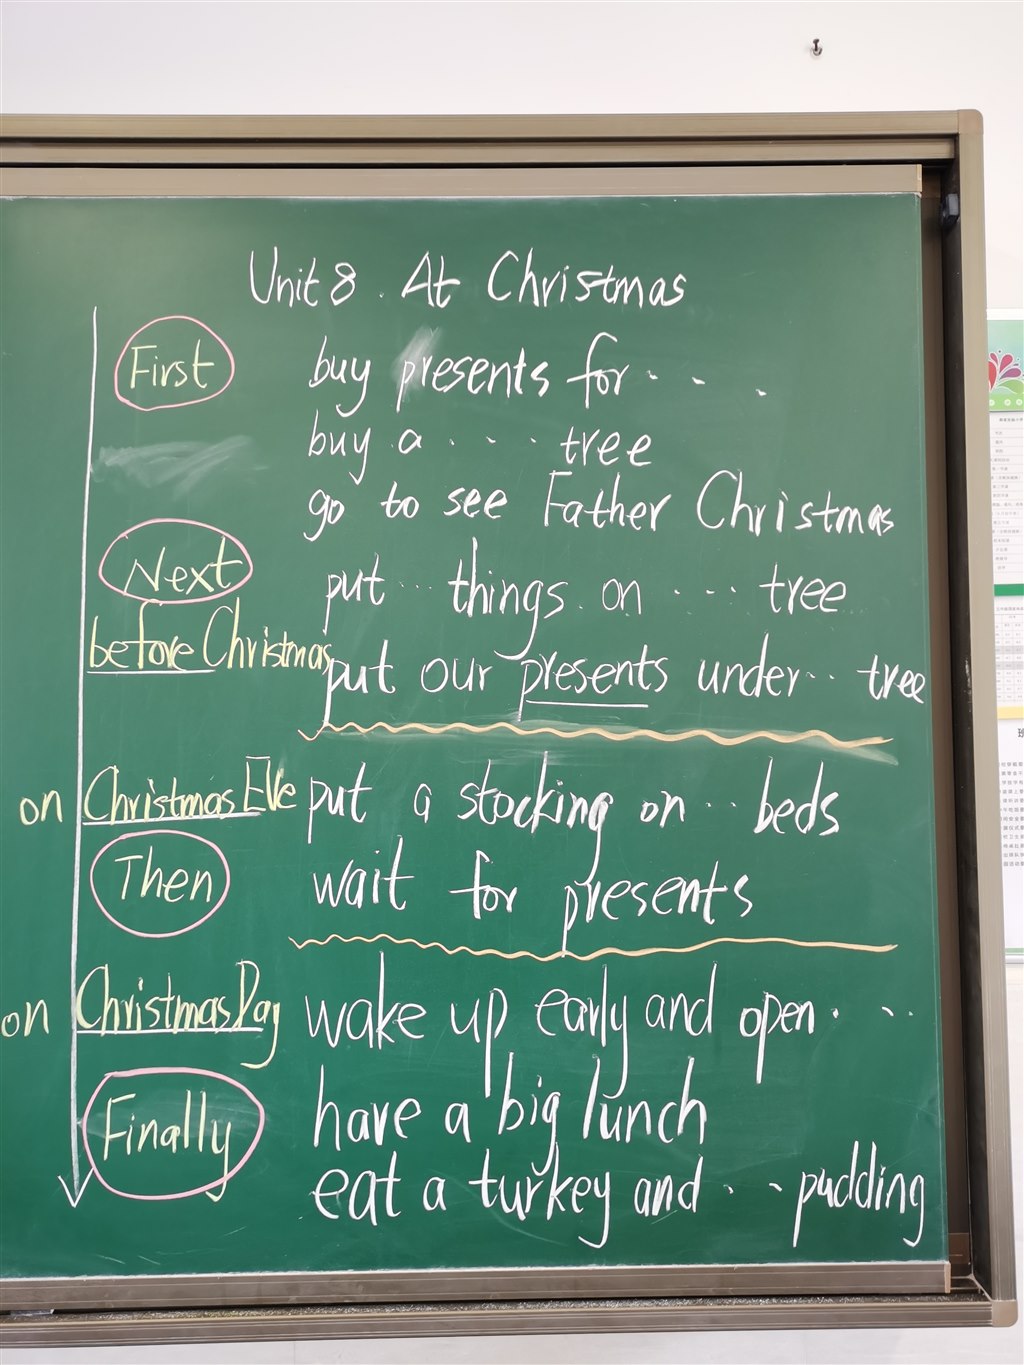 Unit 8. At Christmas
First buy presents for . . .
buy a . . . . tree
go to see Father Christmas
Next put . . things on . . . . tree
before Christmas put our presents under . . tree
on Christmas Eve put a stocking on . . beds
Then wait for presents
on Christmas Day wake up early and open . . .
Finally have a big lunch
eat a turkey and . . . pudding